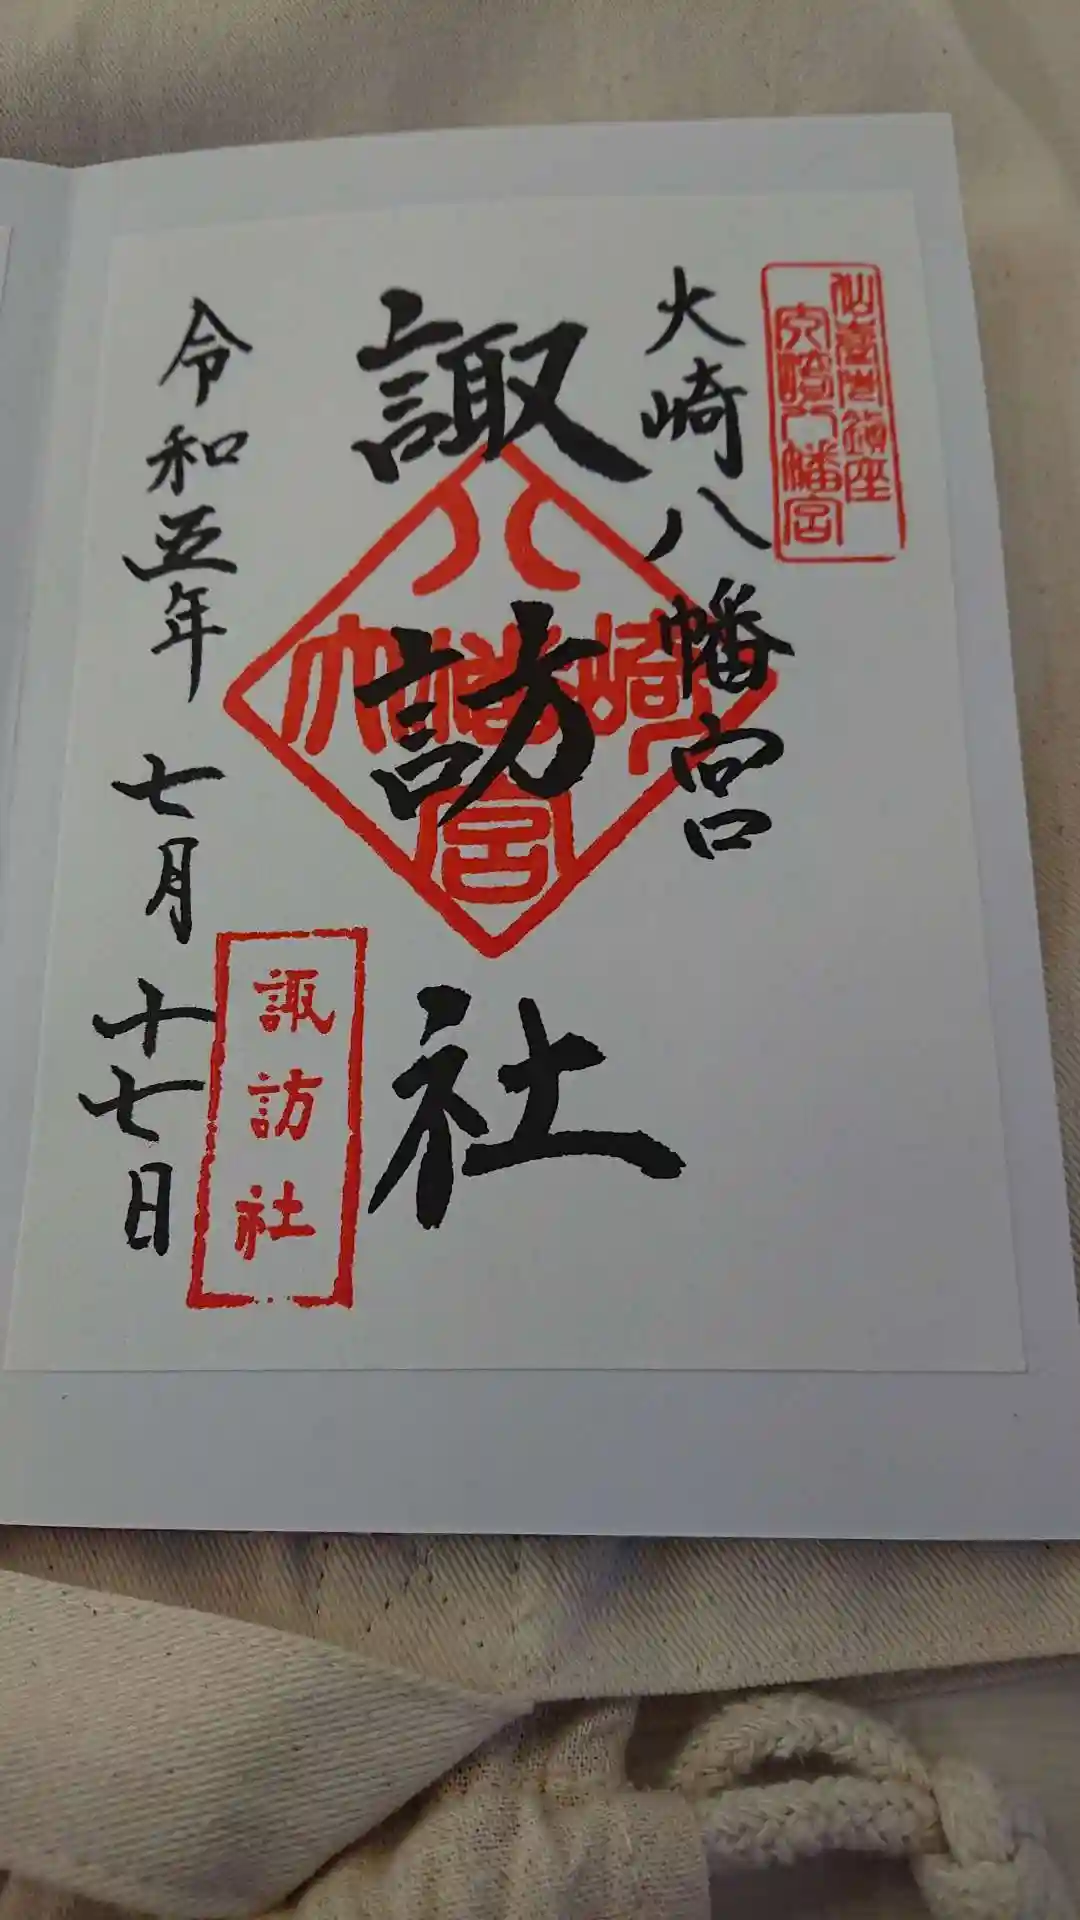 仙臺巌鎮座
大崎八幡宮
大崎八幡宮
諏訪社
八
大崎八幡宮
諏訪社
令和五年 七月 十七日